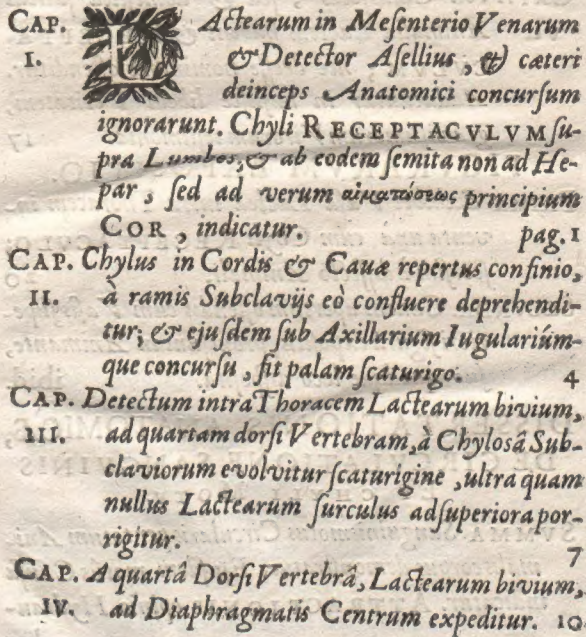 CAP. LActearum in Meſenterio Venarum
I. & Detector Aſellius, & cæteri
deinceps Anatomici concurſum
ignorarunt. Chyli RECEPTACVLVM ſu-
pra Lumbos, & ab eodem ſemita non ad He-
par, ſed ad verum αἱματώσεως principium
COR, indicatur. pag. 1
CAP. Chylus in Cordis & Cauæ repertus confinio,
II. à ramis Subclavijs eò confluere deprehendi-
tur; & ejuſdem ſub Axillarium Iugulariúm-
que concurſu, fit palam ſcaturigo. 4
CAP. Detectum intra Thoracem Lactearum bivium,
III. ad quartam dorſi Vertebram, à Chyloſâ Sub-
claviorum evolvitur ſcaturigine, ultra quam
nullus Lactearum ſurculus ad ſuperiora por-
rigitur. 7
CAP. A quartâ Dorſi Vertebrâ, Lactearum bivium,
IV. ad Diaphragmatis Centrum expeditur. 10